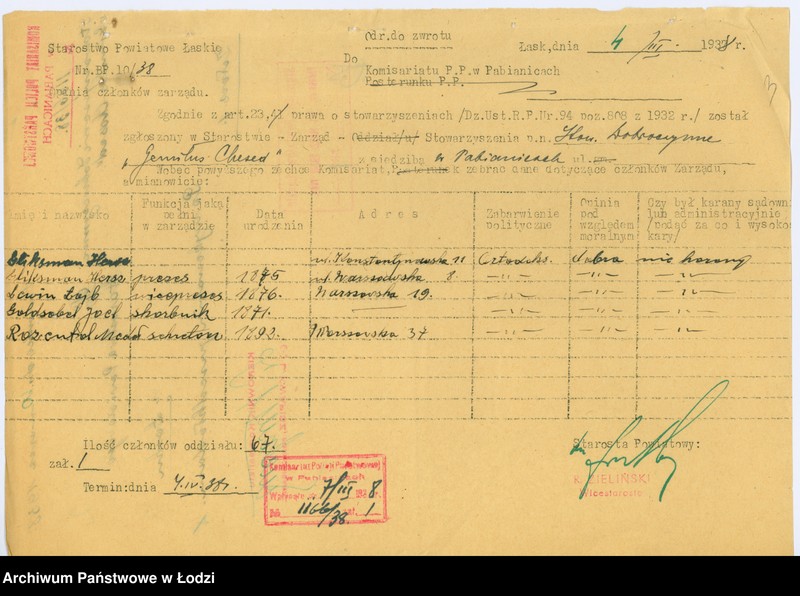 odr.do zwrotu
Starostwo Powiatowe Łaskie
Łask,dnia 4/III. 1938r.
Nr.BP.10/38
Do
Komisariatu P.P.w Pabianicach
Posterunku P.P.
Opinia członków zarządu.
Zgodnie z art.23, prawa o stowarzyszeniach /Dz.Ust.R.P.Nr.94 poz.808 z 1932 r./ został
zgłoszony w Starostwie - Zarząd - Oddział/u/ Stowarzyszenia p.n. Stow. Dobroczynne
„Gemilus Chesed" z siedzibą w Pabianicach ul.
Wobec powyższego zechce Komisariat, Posterunek zebrać dane dotyczące członków Zarządu,
a mianowicie:
Imię i nazwisko
Funkcja jaką pełni w zarządzie
Data urodzenia
Adres
Zabarwienie polityczne
Opinia pod względem moralnym
Czy był karany sądownie lub administracyjnie /podać za co i wysokość kary/
Gliksman Hersz ul. Konstantynowska 11 Ortodoks. dobra nie karany
Gliksman Hersz prezes 1875 ul. Warszawska 8. -"- -"- -"-
Lewin Lajb wiceprezes 1876. Warszawska 19. -"- -"- -"-
Goldsobel Joel skarbnik 1871. -"- -"- -"-
Rozental 1892. Warszawska 37 -"- -"- -"-
Ilość członków oddziału: 67.
zał. 1
Starosta Powiatowy:
Termin:dnia 4.IV.38r.
Komisariat Policji Państwowej
w Pabianicach
Wpłynęło dn. 7/III 1938 r.
1166/38. zał. 1
K. ZIELIŃSKI
Wicestarosta
KOMISARIAT POLICJI PAŃSTWOWEJ
w PABIANICACH
Archiwum Państwowe w Łodzi